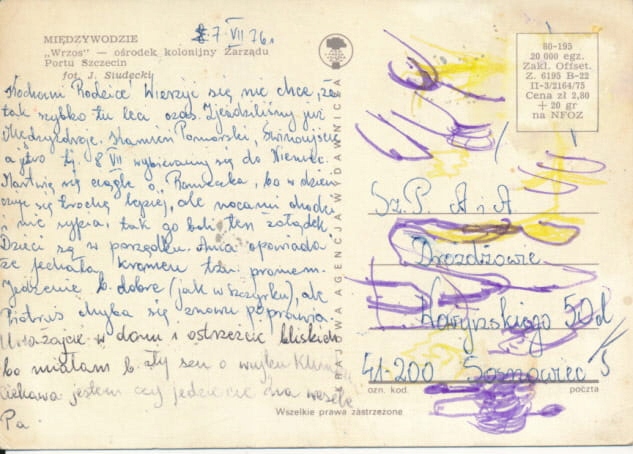 7 VII 76r.
MIĘDZYWODZIE
„Wrzos” — ośrodek kolonijny Zarządu
Portu Szczecin
fot. J. Siudecki
Kochani Rodzice! Wierzyć się nie chce, że
tak szybko tu leci czas. Zjeździliśmy już
Międzyzdroje, Kamień Pomorski, Świnoujście
a jutro tj. 8 VII wybieramy się do Niemiec.
Martwię się ciągle o, bo w dzień
czuje się trochę lepiej, ale nocami chodzi
i nie sypia, tak go boli ten żołądek.
Dzieci są w porządku. Ania opowiada
że jechała kramem tzn. promem.
Jedzenie b. dobre (jak w Szczyrku), ale
Piotruś chyba się znowu poprawia.
Uważajcie w domu i ostrzeżcie bliskich
bo miałam b. zły sen o wujku
ciekawa jestem czy jedziecie na wesele
Pa
KRAJOWA AGENCJA WYDAWNICZA
80-195
20 000 egz.
Zakl. Offset.
Z. 6195 B-22
II-3/2164/75
Cena zł 2,80
+ 20 gr
na NFOZ
Sz.P. A i A
Drozdżowie
50d
41-200 Sosnowiec
ozn. kod. poczta
Wszelkie prawa zastrzeżone